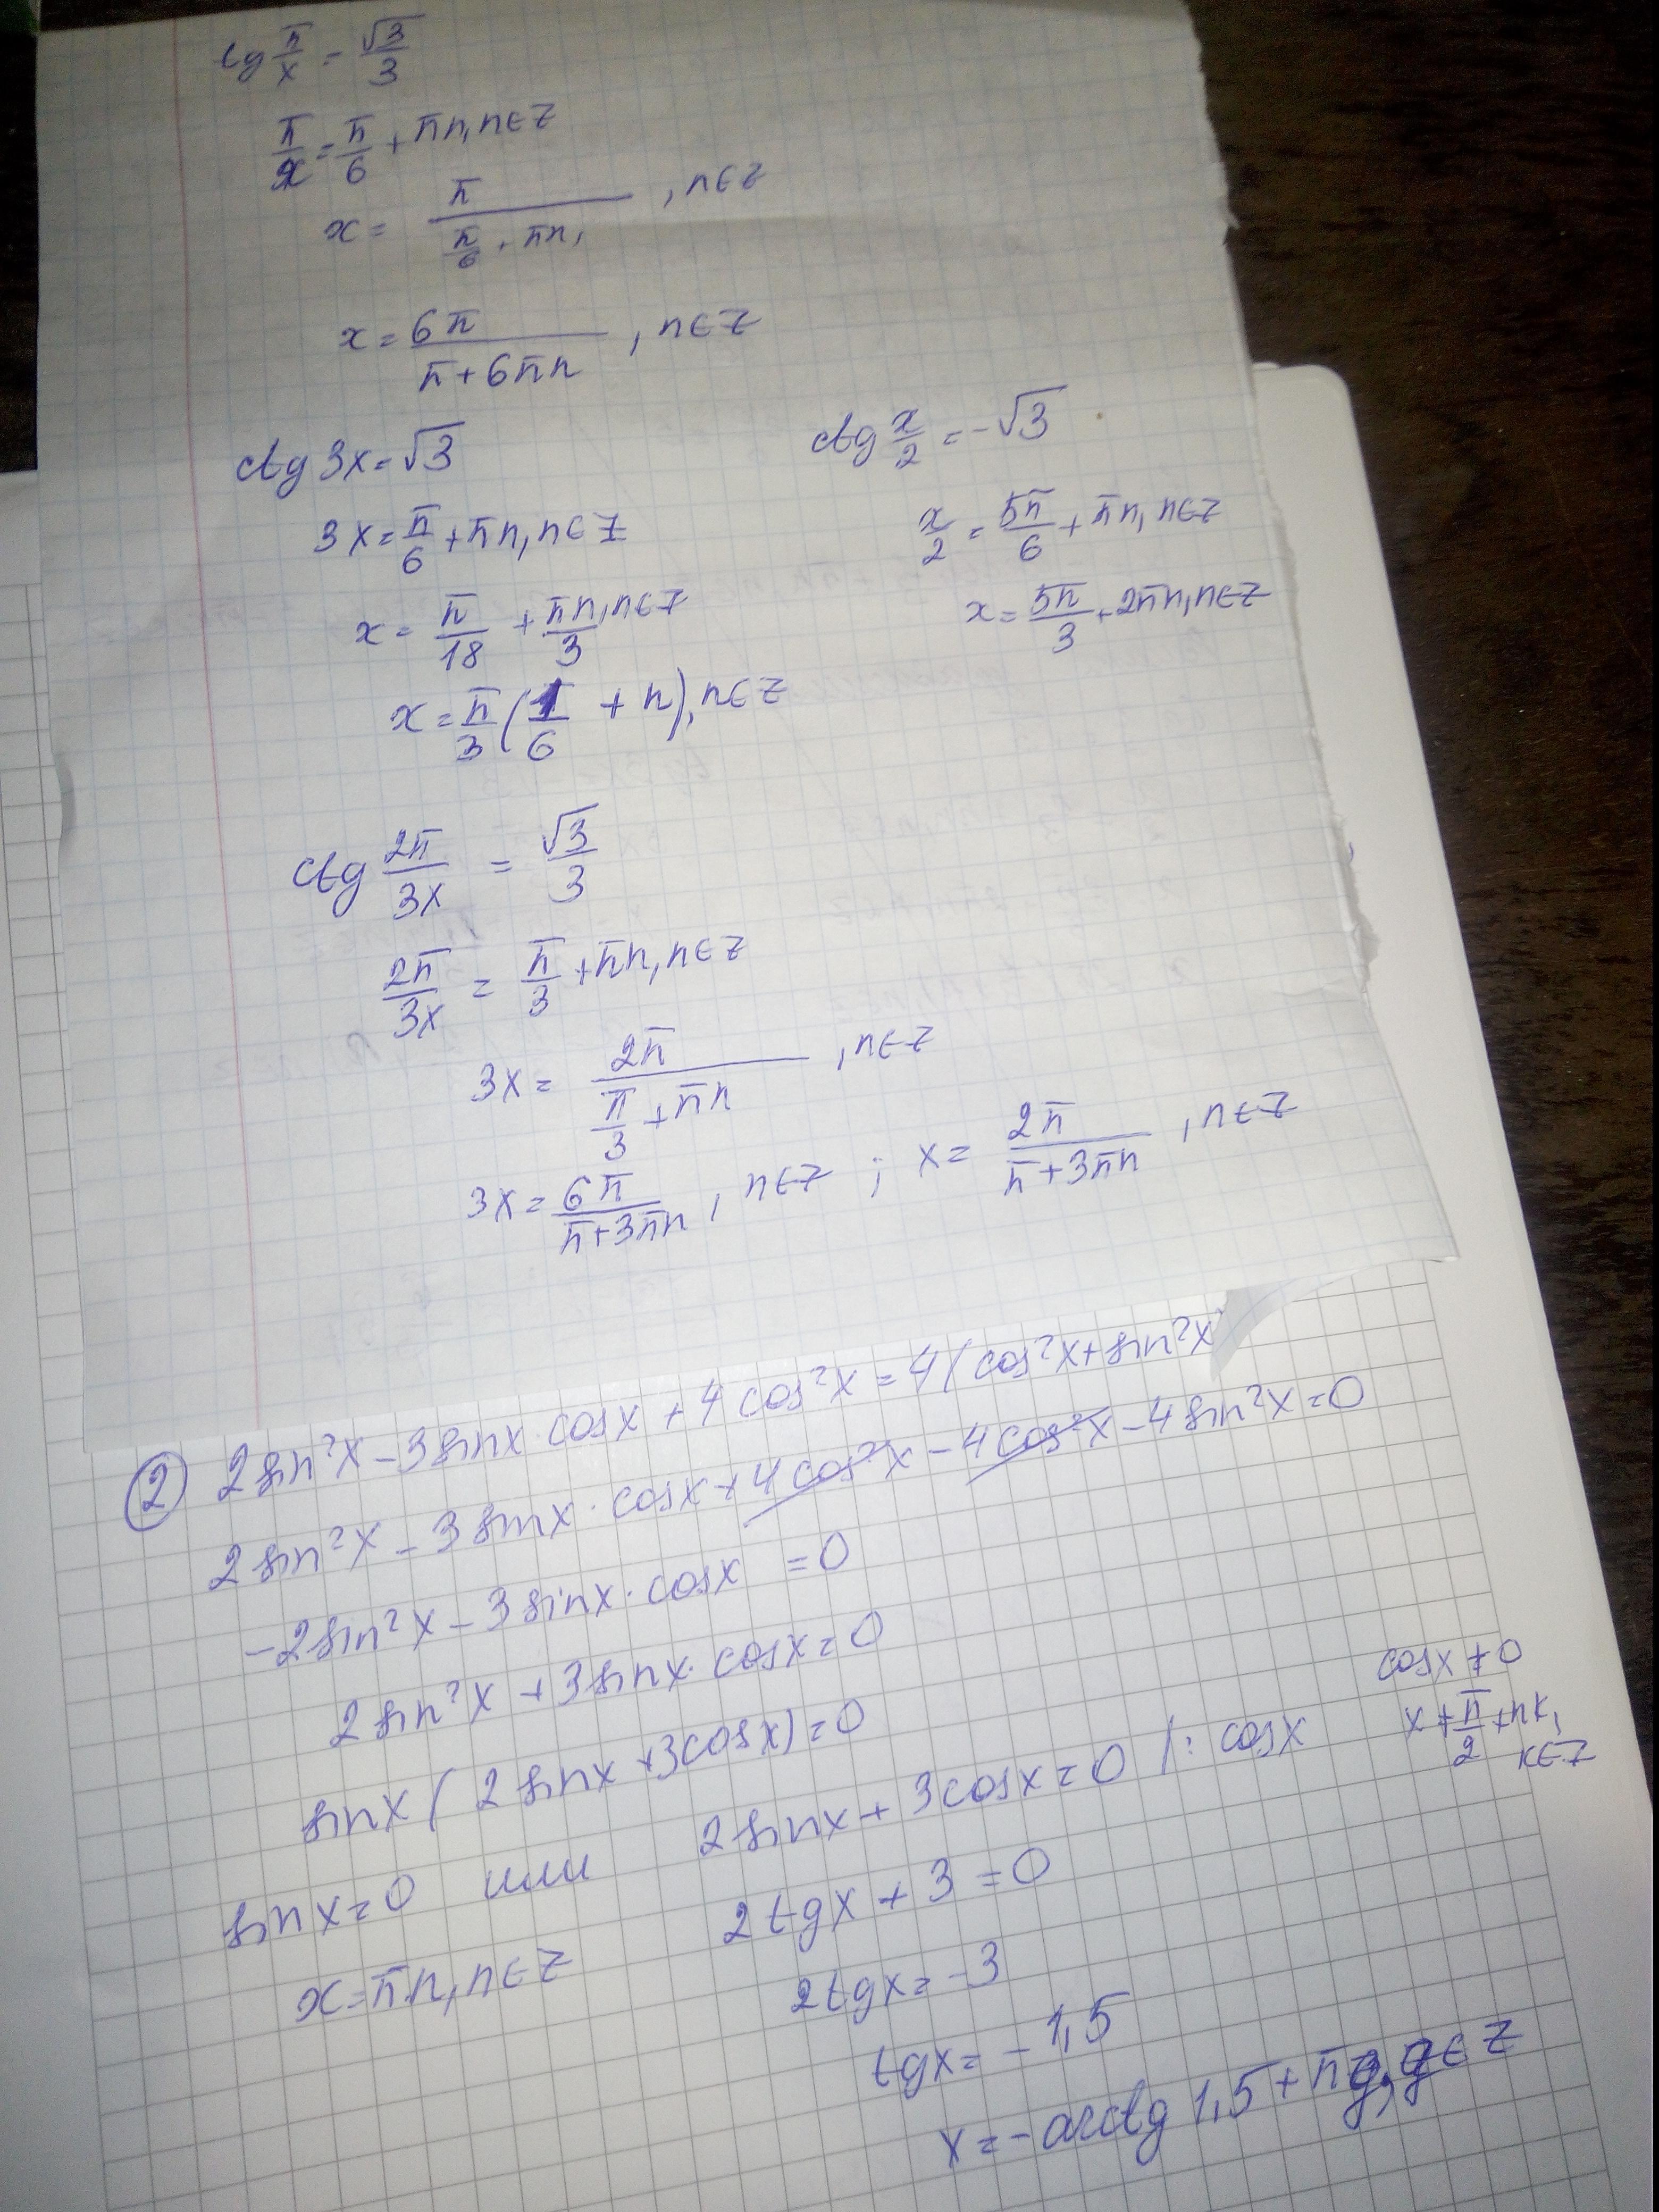 tg π/x = √3/3
π/x = π/6 + πn, n∈Z
x = π/(π/6 + πn), n∈Z
x = 6π/(π+6πn), n∈Z
ctg 3x = √3
3x = π/6 + πn, n∈Z
x = π/18 + πn/3, n∈Z
x = π/3 (1/6 + n), n∈Z
ctg x/2 = -√3
x/2 = 5π/6 + πn, n∈Z
x = 5π/3 + 2πn, n∈Z
ctg 2π/3x = √3/3
2π/3x = π/3 + πn, n∈Z
3x = 2π/(π/3 + πn), n∈Z
3x = 6π/(π+3πn), n∈Z ; x = 2π/(π+3πn), n∈Z
② 2sin²x - 3sinx cosx + 4cos²x = 4(cos²x + sin²x
2sin²x - 3sinx · cosx + 4cos²x - 4cos²x - 4sin²x = 0
-2sin²x - 3sinx · cosx = 0
2sin²x + 3sinx · cosx = 0
sinx(2sinx + 3cosx) = 0
sinx = 0 или 2sinx + 3cosx = 0 /: cosx
cosx ≠ 0
x ≠ π/2 + πk,
k∈Z
x = πn, n∈Z
2tgx + 3 = 0
2tgx = -3
tgx = -1,5
x = -arctg 1,5 + πg, g∈Z